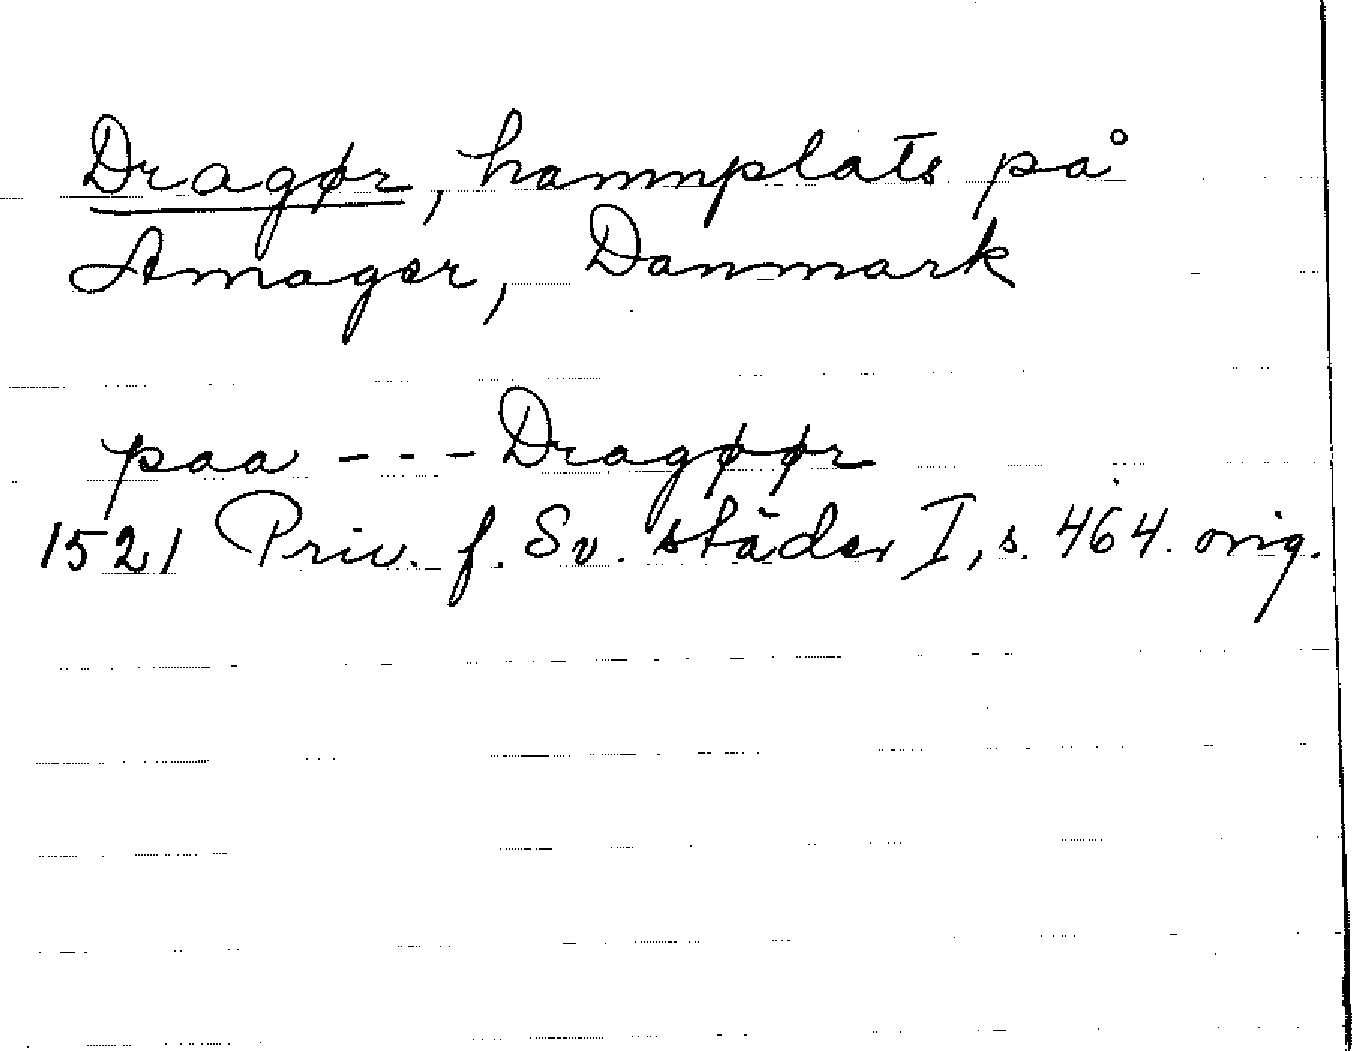 Dragør, hamnplats på
Amager, Danmark
paa - - - Dragøør
1521 Priv. f. Sv. städer I, s. 464. orig.